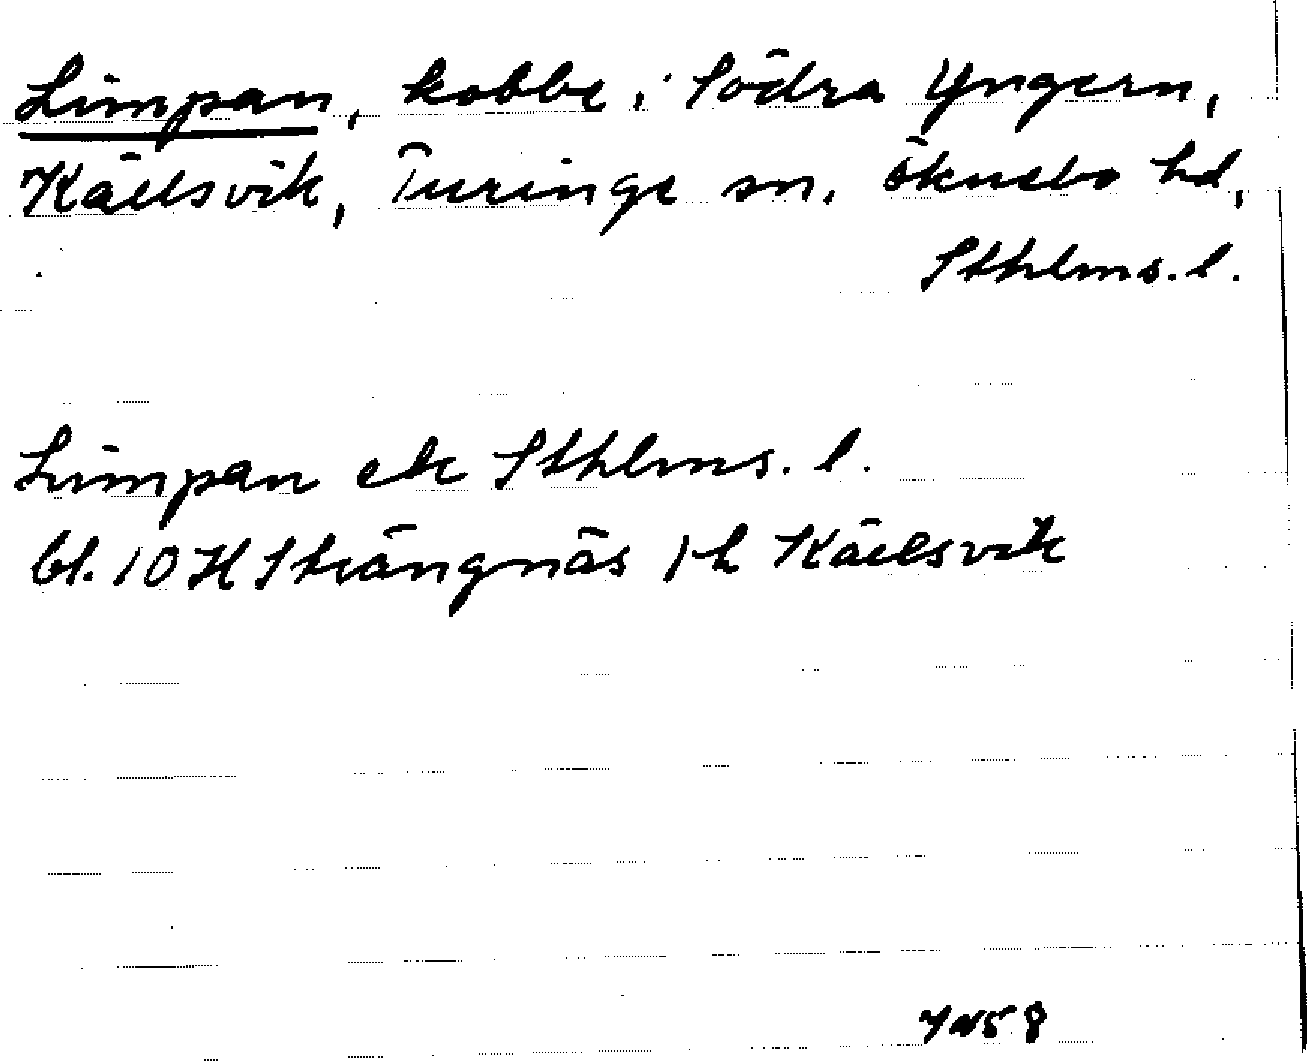 Limpan, kobbe i Södra Yngern,
Källsvik, Turinge sn. Öknebo hd,
Sthlms. l.
Limpan ek Sthlms. l.
bl. 10 H Strängnäs 1 h Källsvik